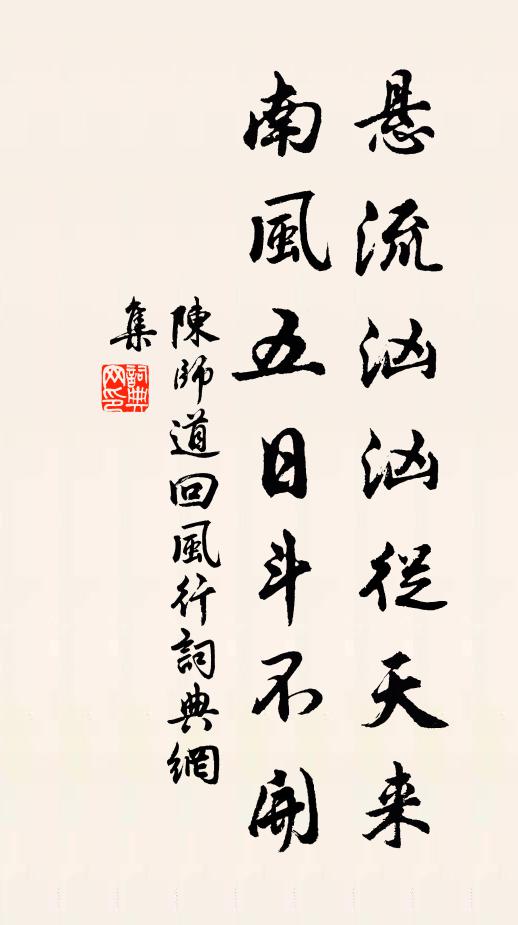 悬流汹汹從天来
南風五日斗不開
陳師道回風行詞典網
集
詞典網印